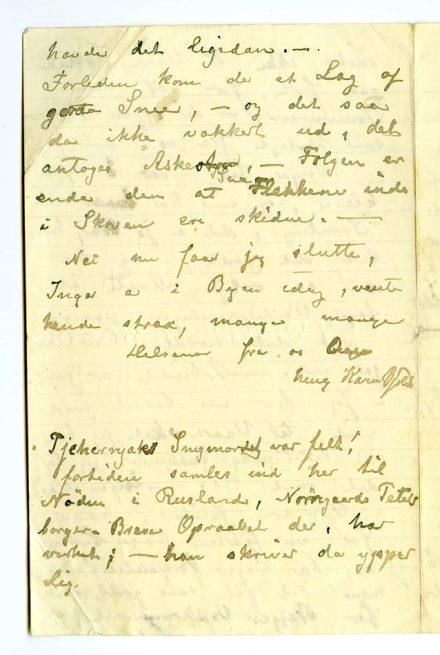 havde det ligedan. —
Forleden kom da et Lag af
Snee, — og det saa
da ikke vakkert ud, det
antages Aske — Følgen er
enda den at Snee Flekkene inde
i Skoven ere skidne. —
Nei nu faar jeg slutte,
Inga er i Byen idag, vente
hende strax, mange mange
Helsener fra os
Karen
Tjchernjaks Snigmordet var felt!
forkiden samles ind her til
Nöden i Rusland, Nörregaards Peters
borger Breve Opraabet der, har
virket; — han skriver da ypper
lig.